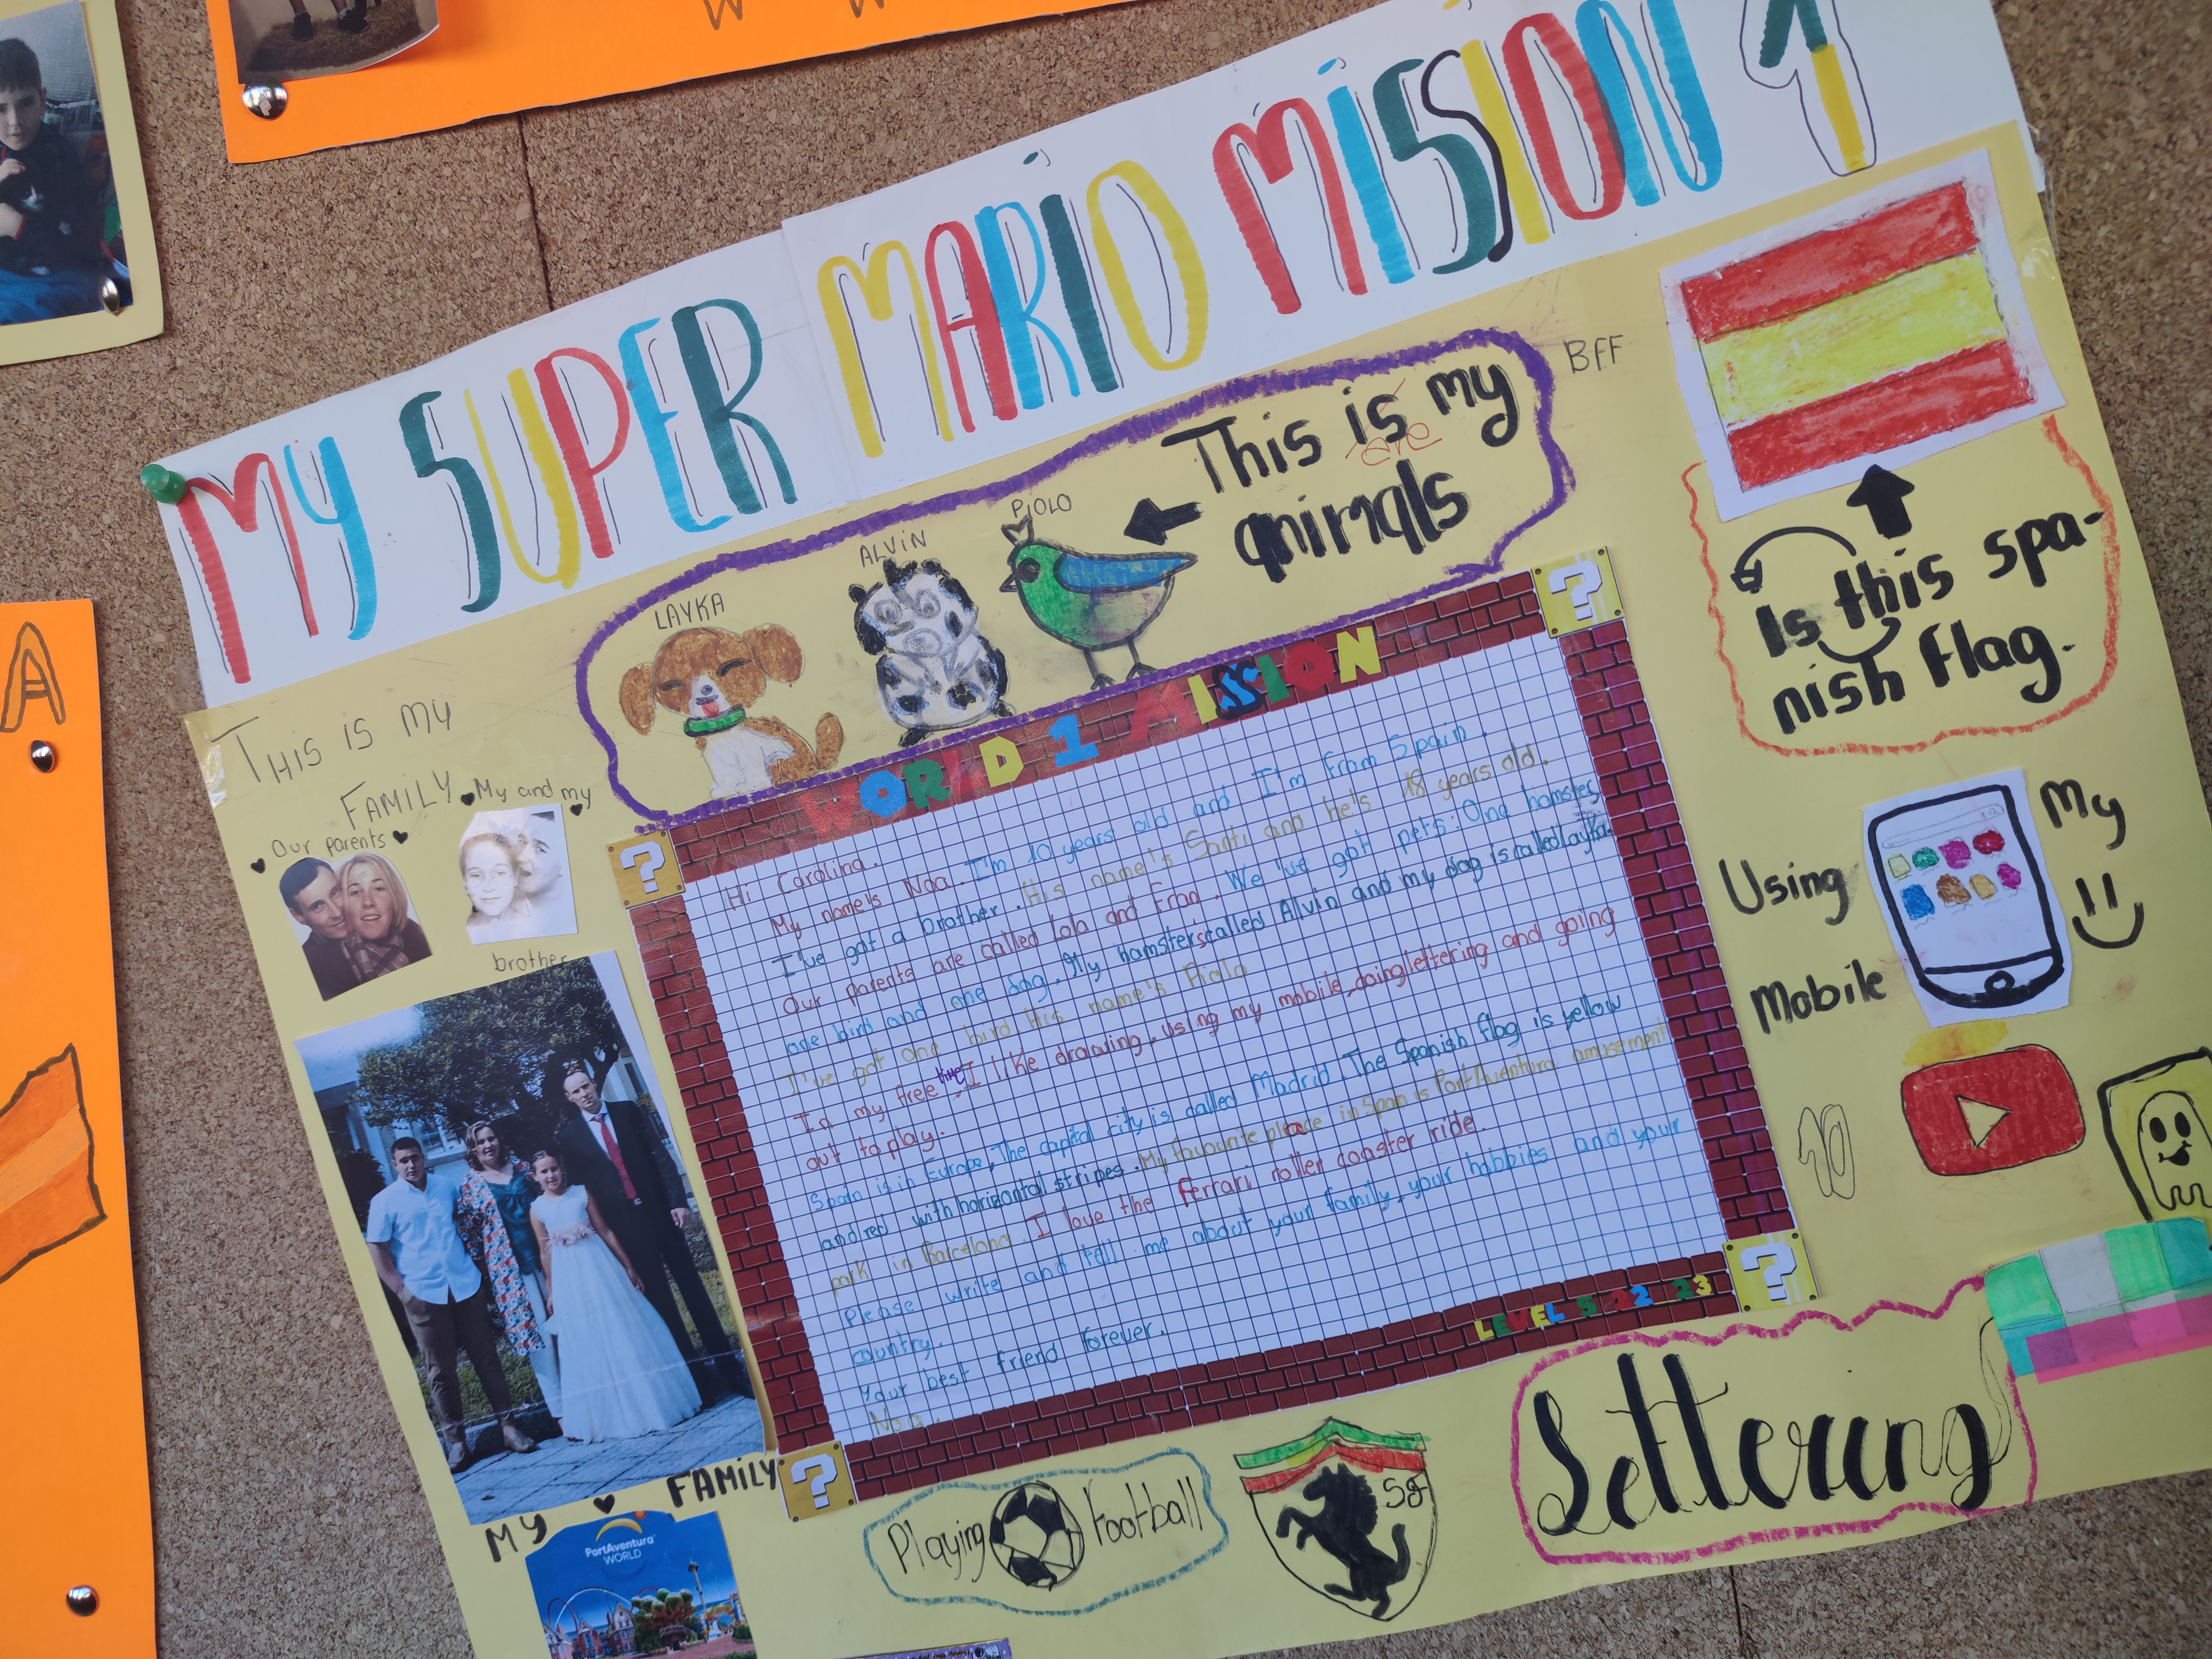 MY SUPER MARIO MISSION 1
BFF
This is my
are
animals
PIOLO
ALVIN
LAYKA
Is this spa-
nish flag.
THIS IS MY
FAMILY
Our parents
My and my
brother
WORLD 1 MISSION
Hi Carolina.
My name's Noa. I'm 10 years old and I'm from Spain.
I've got a brother. His name's Santi and he's 18 years old.
Our parents are called Lola and Fran. We've got pets: One hamster,
one bird and one dog. My hamster's called Alvin and my dog is called Layka.
I've got one bird His name's Piolo
In my free time, I like drawing, using my mobile, doing lettering and going
out to play.
Spain is in Europe, The capital city is called Madrid. The Spanish flag is yellow
and red with horizontal stripes. My favourite place in Spain is PortAventura amusement
park in Barcelona. I love the Ferrari roller coaster ride.
Please write and tell me about your family, your hobbies and your
country.
Your best friend forever.
Noa.
LEVEL 5 22 23
Using
My
Mobile
MY FAMILY
PortAventura
WORLD
Playing football
SF
Lettering
A